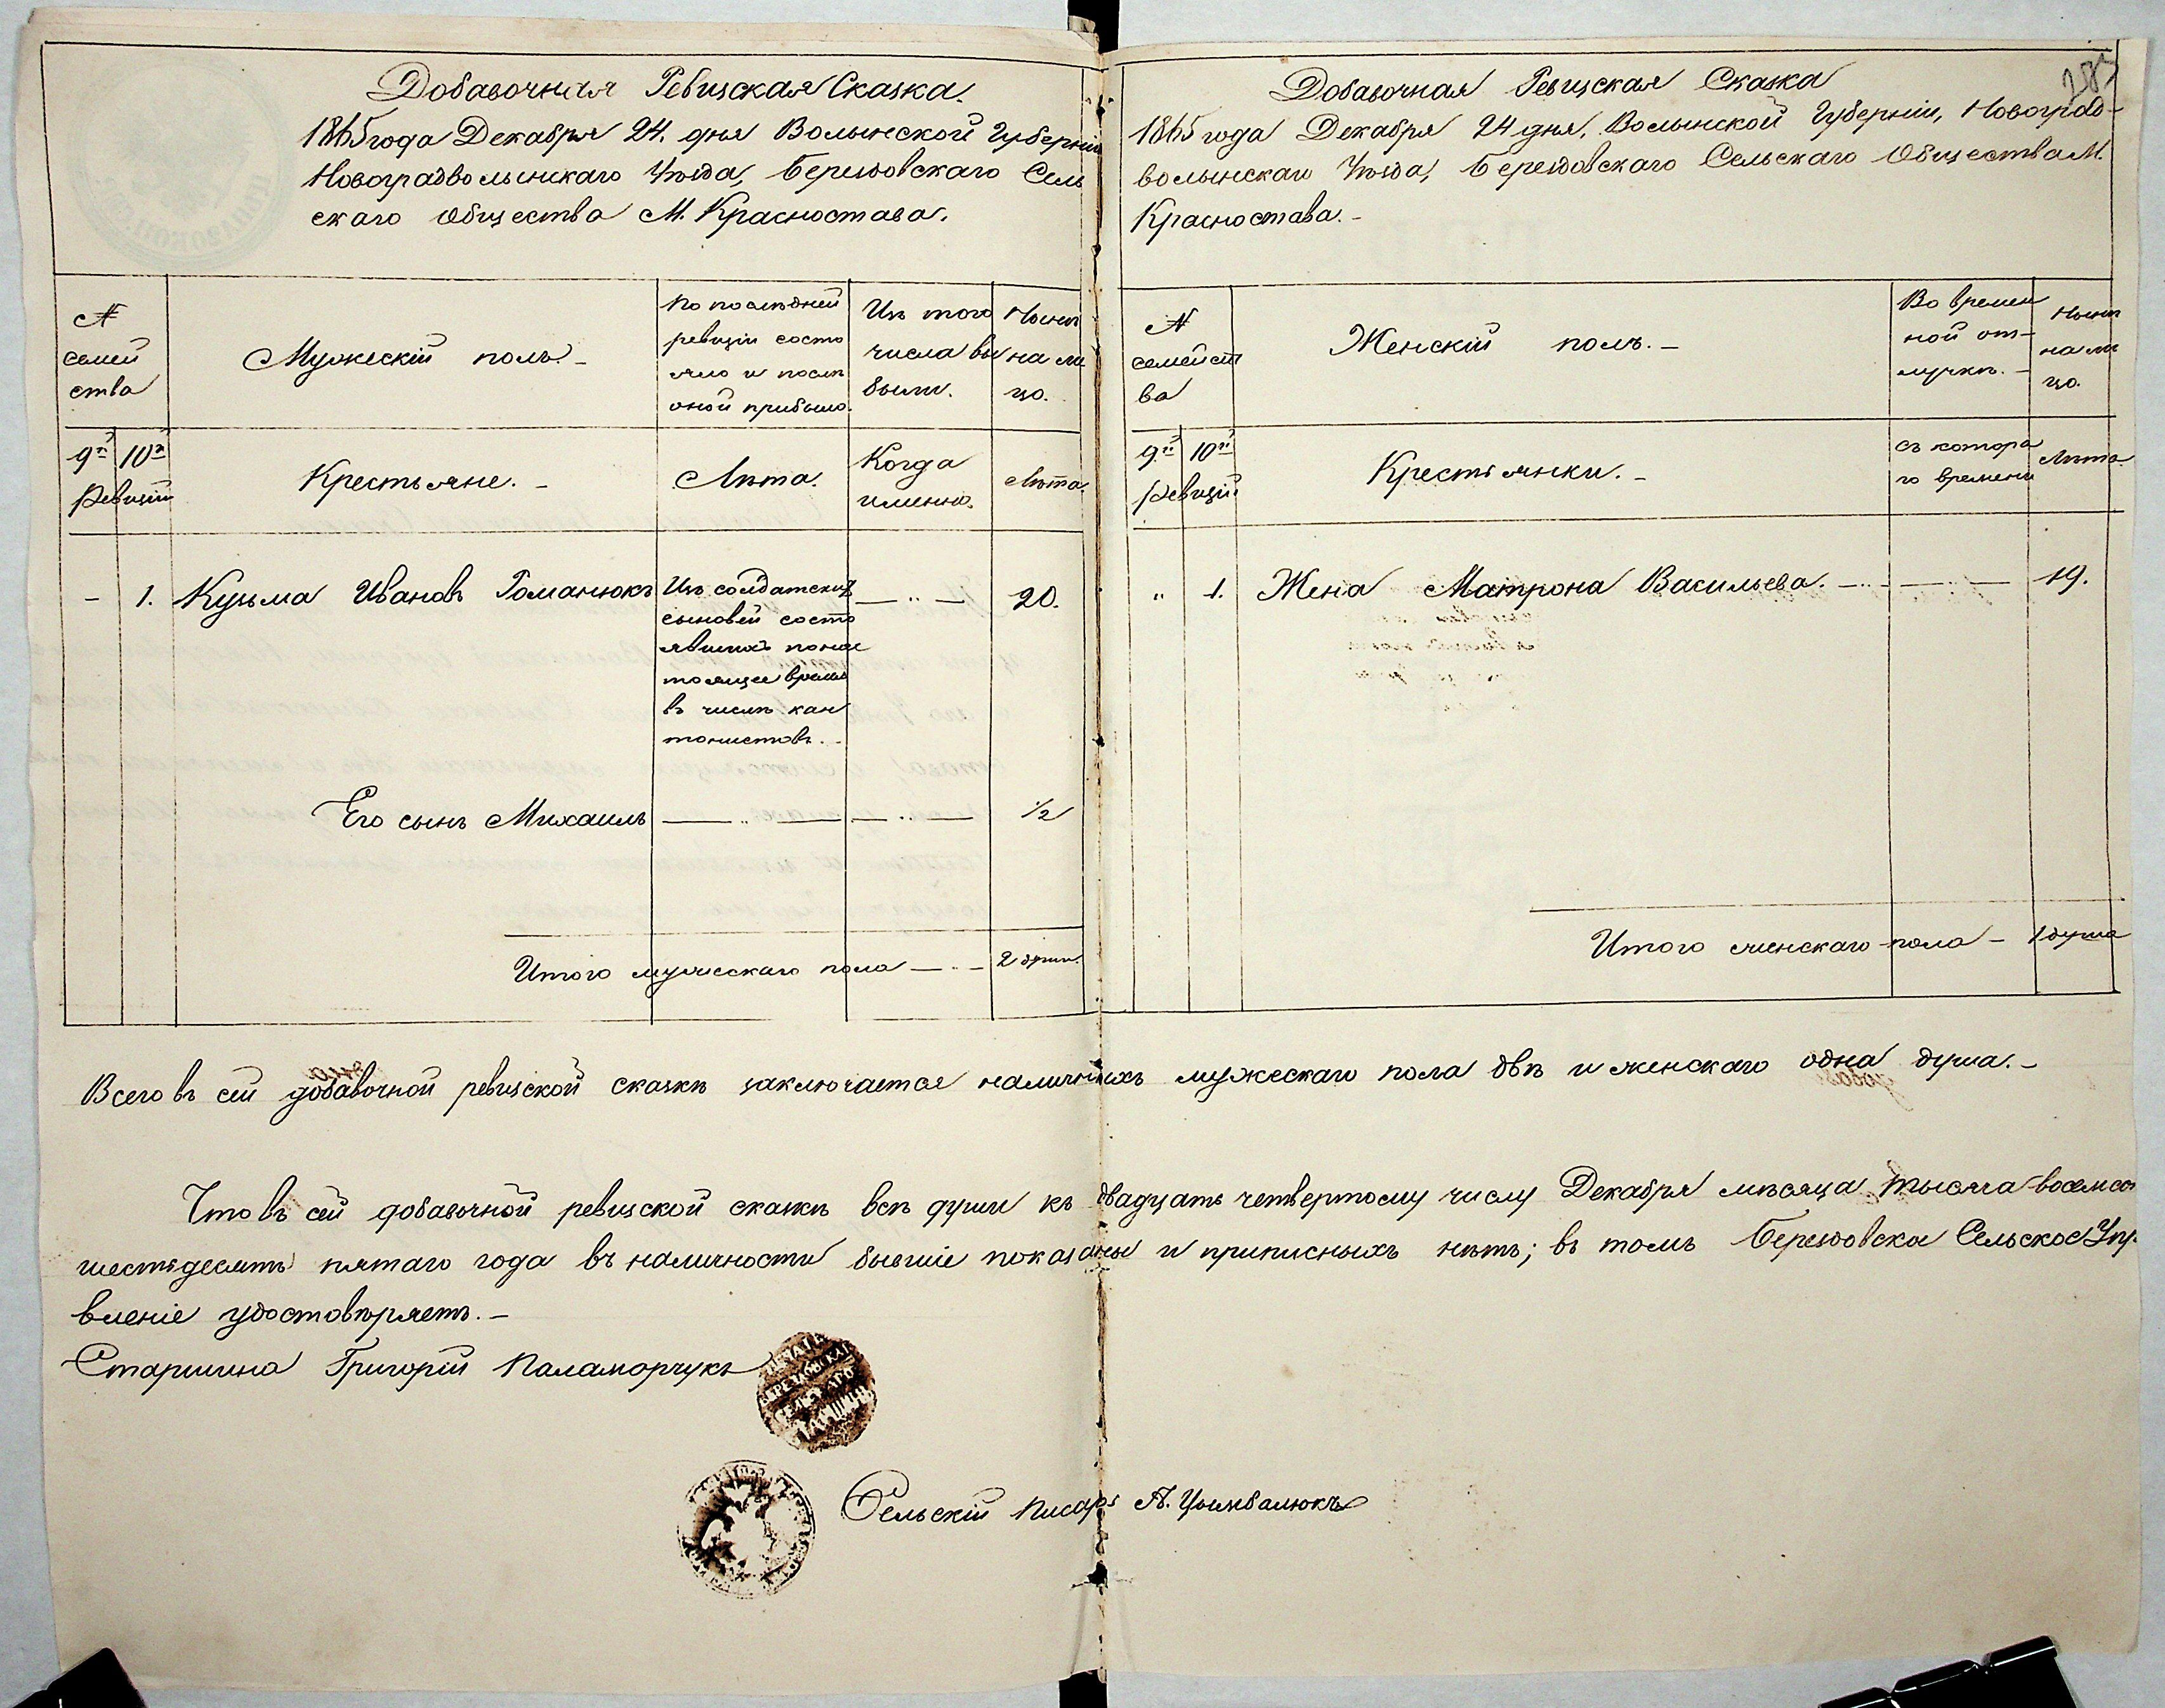 Добавочная Ревизская Сказка.
1865 года Декабря 24. дня Волынской Губерніи
Новоградволынскаго Уѣзда, Берездовскаго Сель
скаго Общества М. Красностава.
№
семей
ства
Мужескій полъ. -
По послѣдней
ревизіи состо
яло и послѣ
оной прибыло.
Изъ того
числа вы
были.
Нынѣ
на ли
цо.
9й 10й
Ревизіи
Крестьяне. -
Лѣта.
Когда
именно.
Лѣта.
- 1. Кузьма Ивановъ Романюкъ
Изъ солдатскихъ
сыновей состо
явшихъ понас
тоящее время
въ числѣ кан
тонистовъ. -
— .. —
20.
Его сынъ Михаилъ — .. — — .. — 1/2
Итого мужескаго пола — .. — 2 души.
285
Добавочная Ревизская Сказка
1865 года Декабря 24 дня, Волынской Губерніи, Новоград-
волынскаго Уѣзда, Берездовскаго Сельскаго Общества М.
Красностава. -
№
семейст
ва
Женскій полъ. -
Во времен
ной от-
лучкѣ. -
Нынѣ
на ли
цо.
9й 10й
Ревизій
Крестьянки. -
Съ котора
го времени
Лѣта.
" 1. Жена Матрона Васильева. — .. — .. — 19.
Итого женскаго пола - 1 душа
Всего въ сей добавочной ревизской сказкѣ заключается наличныхъ мужескаго пола двѣ и женскаго одна душа. -
Что въ сей добавочной ревизской сказкѣ всѣ души къ двадцать четвертому числу Декабря мѣсяца тысяча восемсот
шестьдесятъ пятаго года въ наличности бывшіе показаны и приписныхъ нѣтъ; въ томъ Берездовское Сельское Упр.
вленіе удостовѣряетъ. -
Старшина Григорій Паламорчукъ
Сельскій Писарь А. Цымбалюкъ